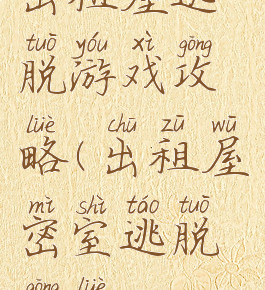 出租屋逃
tuō yóu xì gōng
脱游戏攻
lüè chū zū wū
略(出租屋
mì shì táo tuō
密室逃脱
gōng lüè